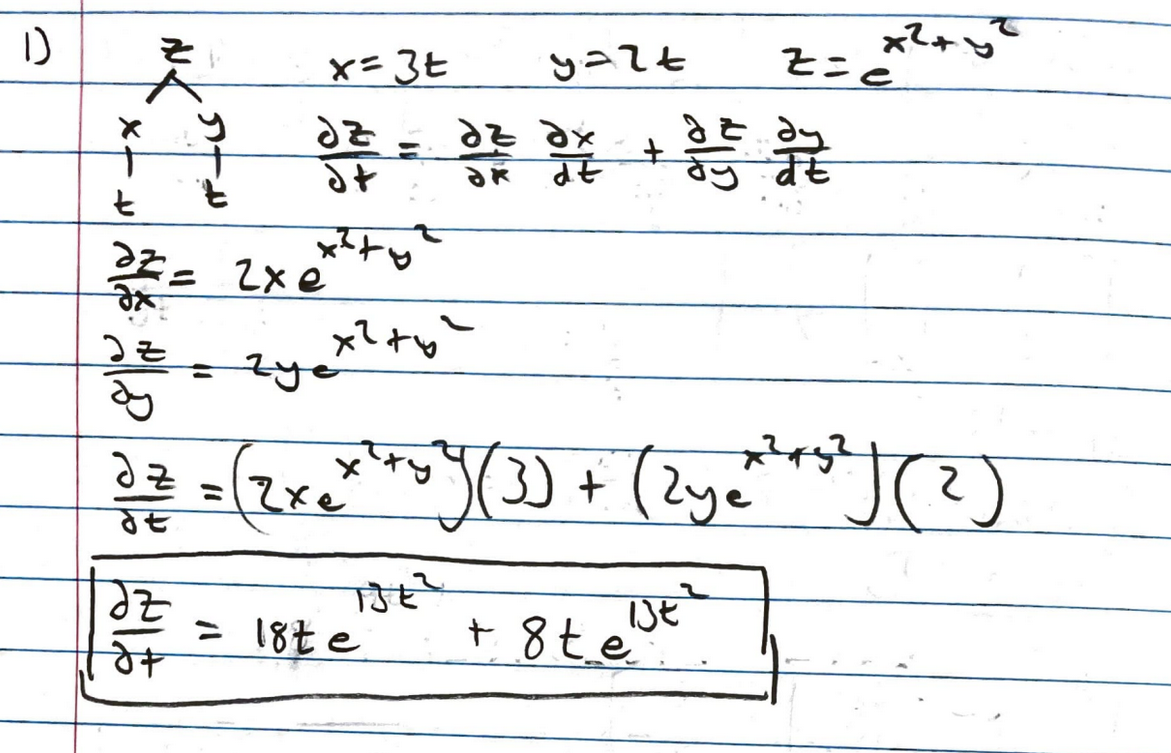 1) z x=3t y=2t z=e^{x²+y²}
x y ∂z/∂t = ∂z/∂x ∂x/dt + ∂z/∂y ∂y/dt
t t
∂z/∂x = 2xe^{x²+y²}
∂z/∂y = 2ye^{x²+y²}
∂z/∂t = (2xe^{x²+y²})(3) + (2ye^{x²+y²})(2)
∂z/∂t = 18te^{13t²} + 8te^{13t²}